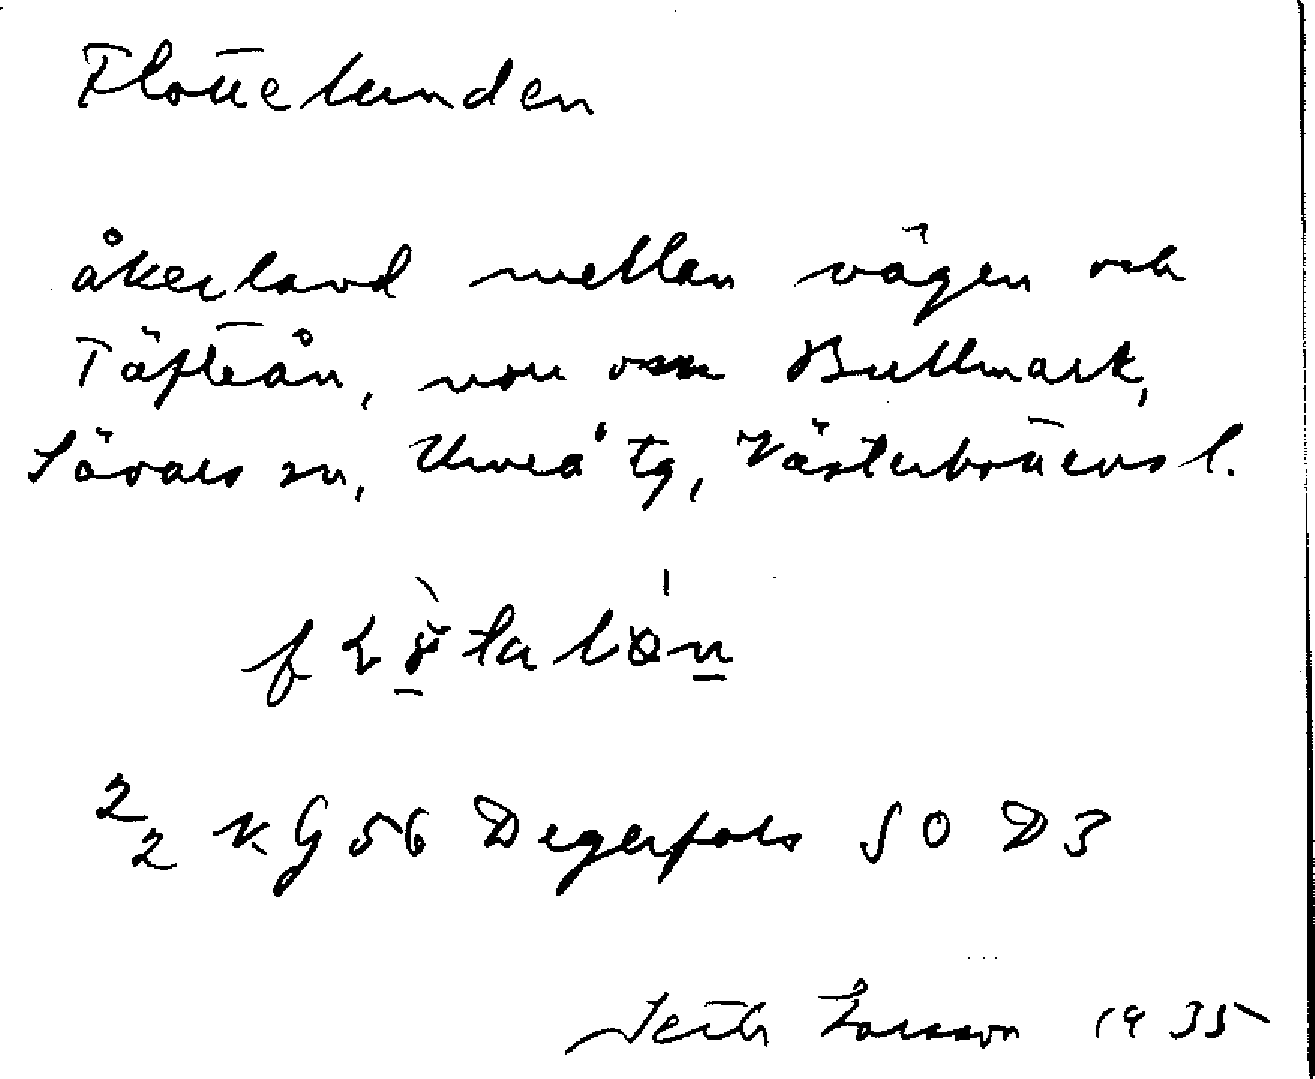 Flottelunden
åkerland mellan vägen och
Täfteån, norr om Bullmark,
Sävars sn, Umeå tg, Västerbottens l.
2/2 KG 56 Degerfors SO D3
Seth Larsson 1935